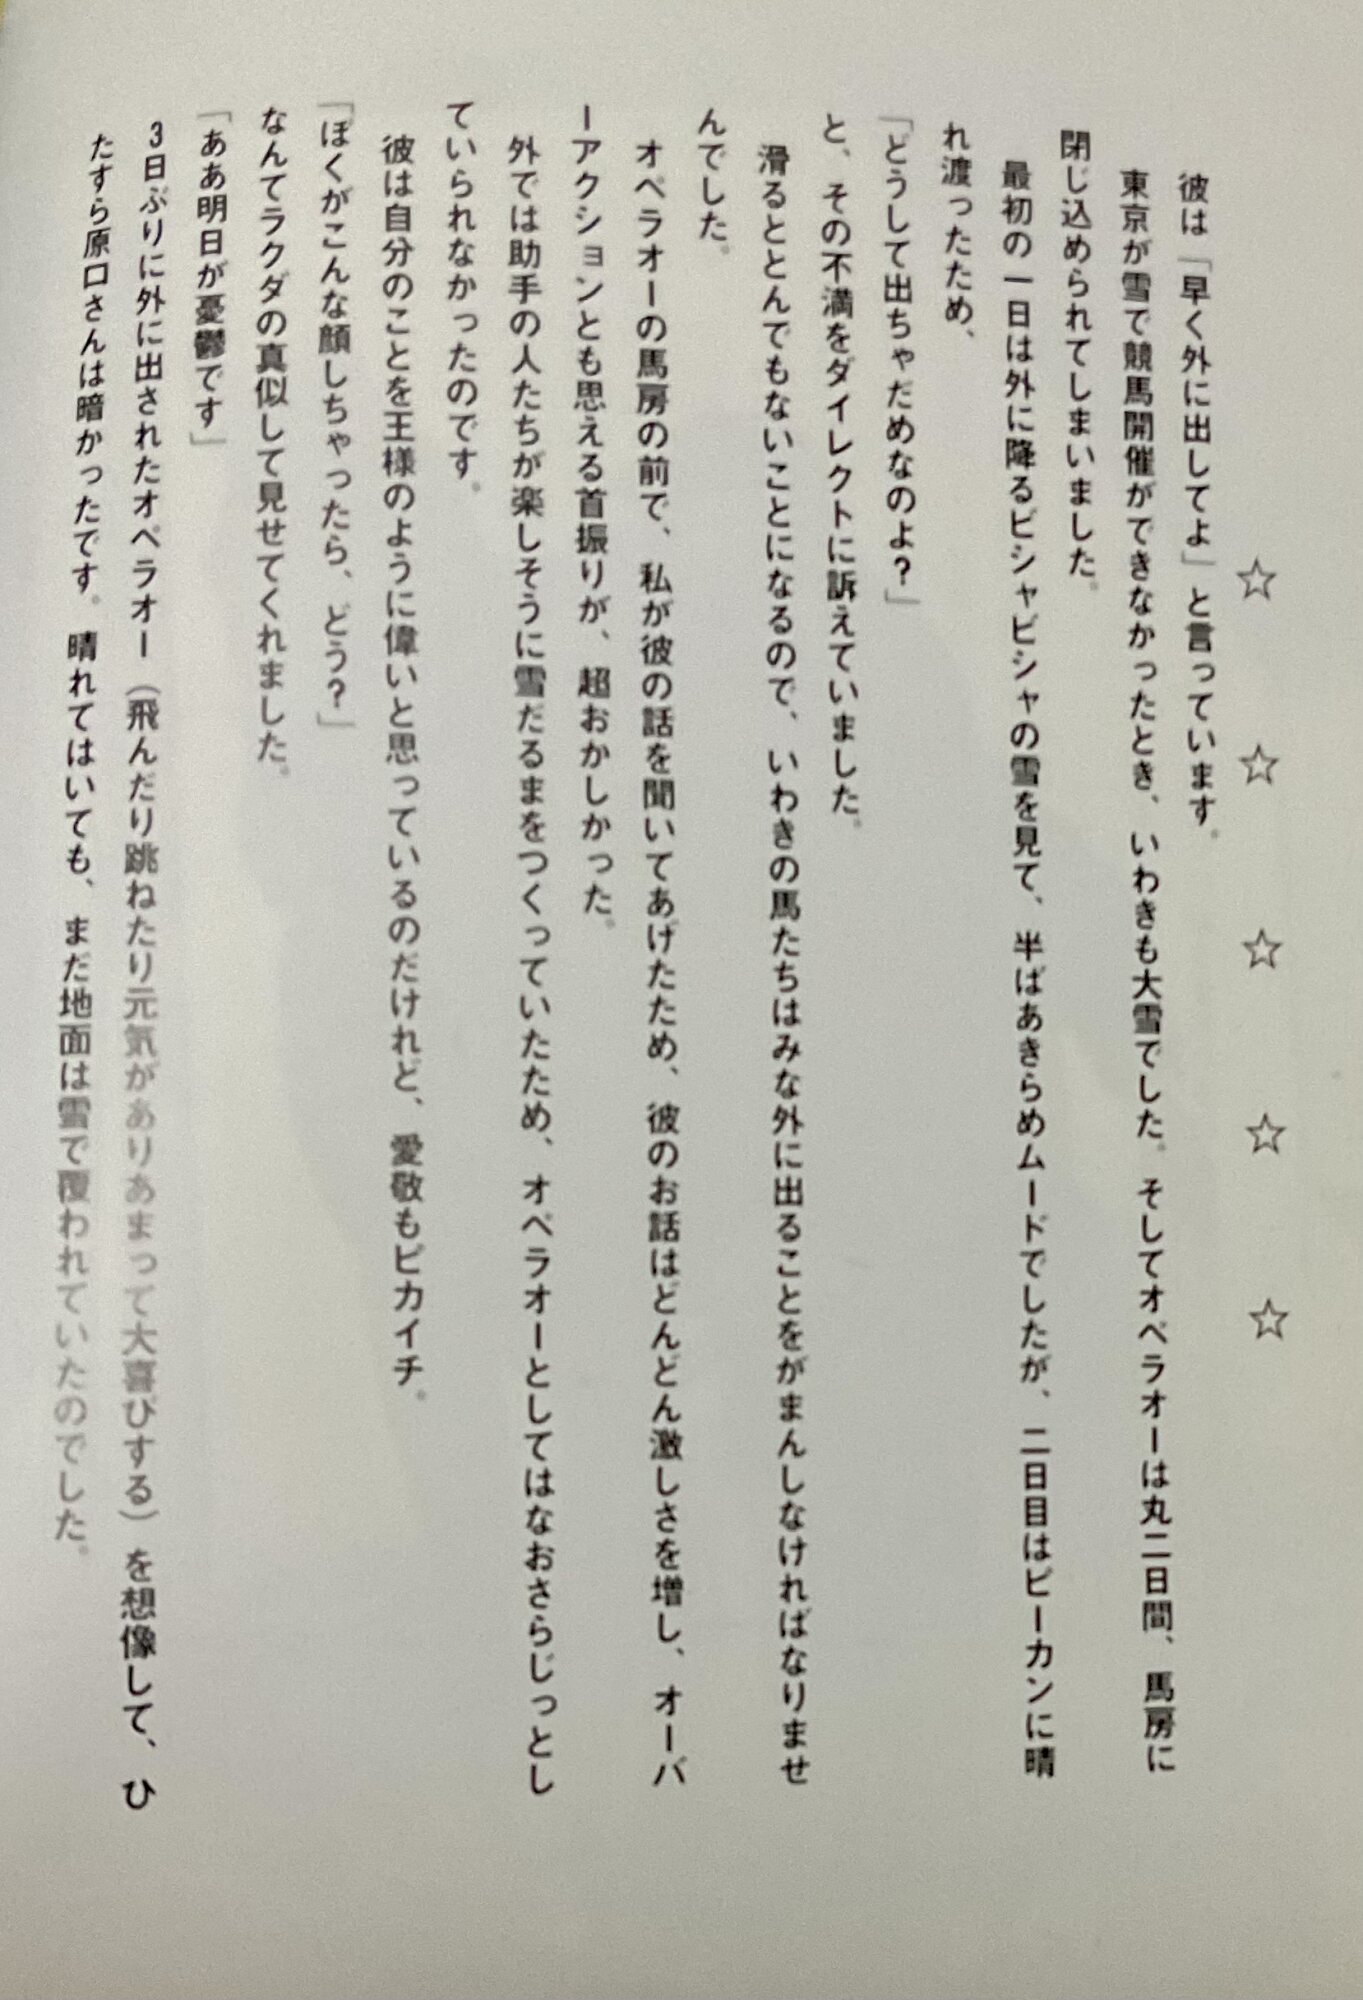 ☆ ☆ ☆ ☆ ☆
彼は「早く外に出してよ」と言っています。
東京が雪で競馬開催ができなかったとき、いわきも大雪でした。そしてオペラオーは丸二日間、馬房に
閉じ込められてしまいました。
最初の一日は外に降るビシャビシャの雪を見て、半ばあきらめムードでしたが、二日目はピーカンに晴
れ渡ったため、
「どうして出ちゃだめなのよ?」
と、その不満をダイレクトに訴えていました。
滑るととんでもないことになるので、いわきの馬たちはみな外に出ることをがまんしなければなりませ
んでした。
オペラオーの馬房の前で、私が彼の話を聞いてあげたため、彼のお話はどんどん激しさを増し、オーバ
ーアクションとも思える首振りが、超おかしかった。
外では助手の人たちが楽しそうに雪だるまをつくっていたため、オペラオーとしてはなおさらじっとし
ていられなかったのです。
彼は自分のことを王様のように偉いと思っているのだけれど、愛敬もピカイチ。
「ぼくがこんな顔しちゃったら、どう?」
なんてラクダの真似して見せてくれました。
「ああ明日が憂鬱です」
3日ぶりに外に出されたオペラオー(飛んだり跳ねたり元気がありあまって大喜びする)を想像して、ひ
たすら原口さんは暗かったです。晴れてはいても、まだ地面は雪で覆われていたのでした。